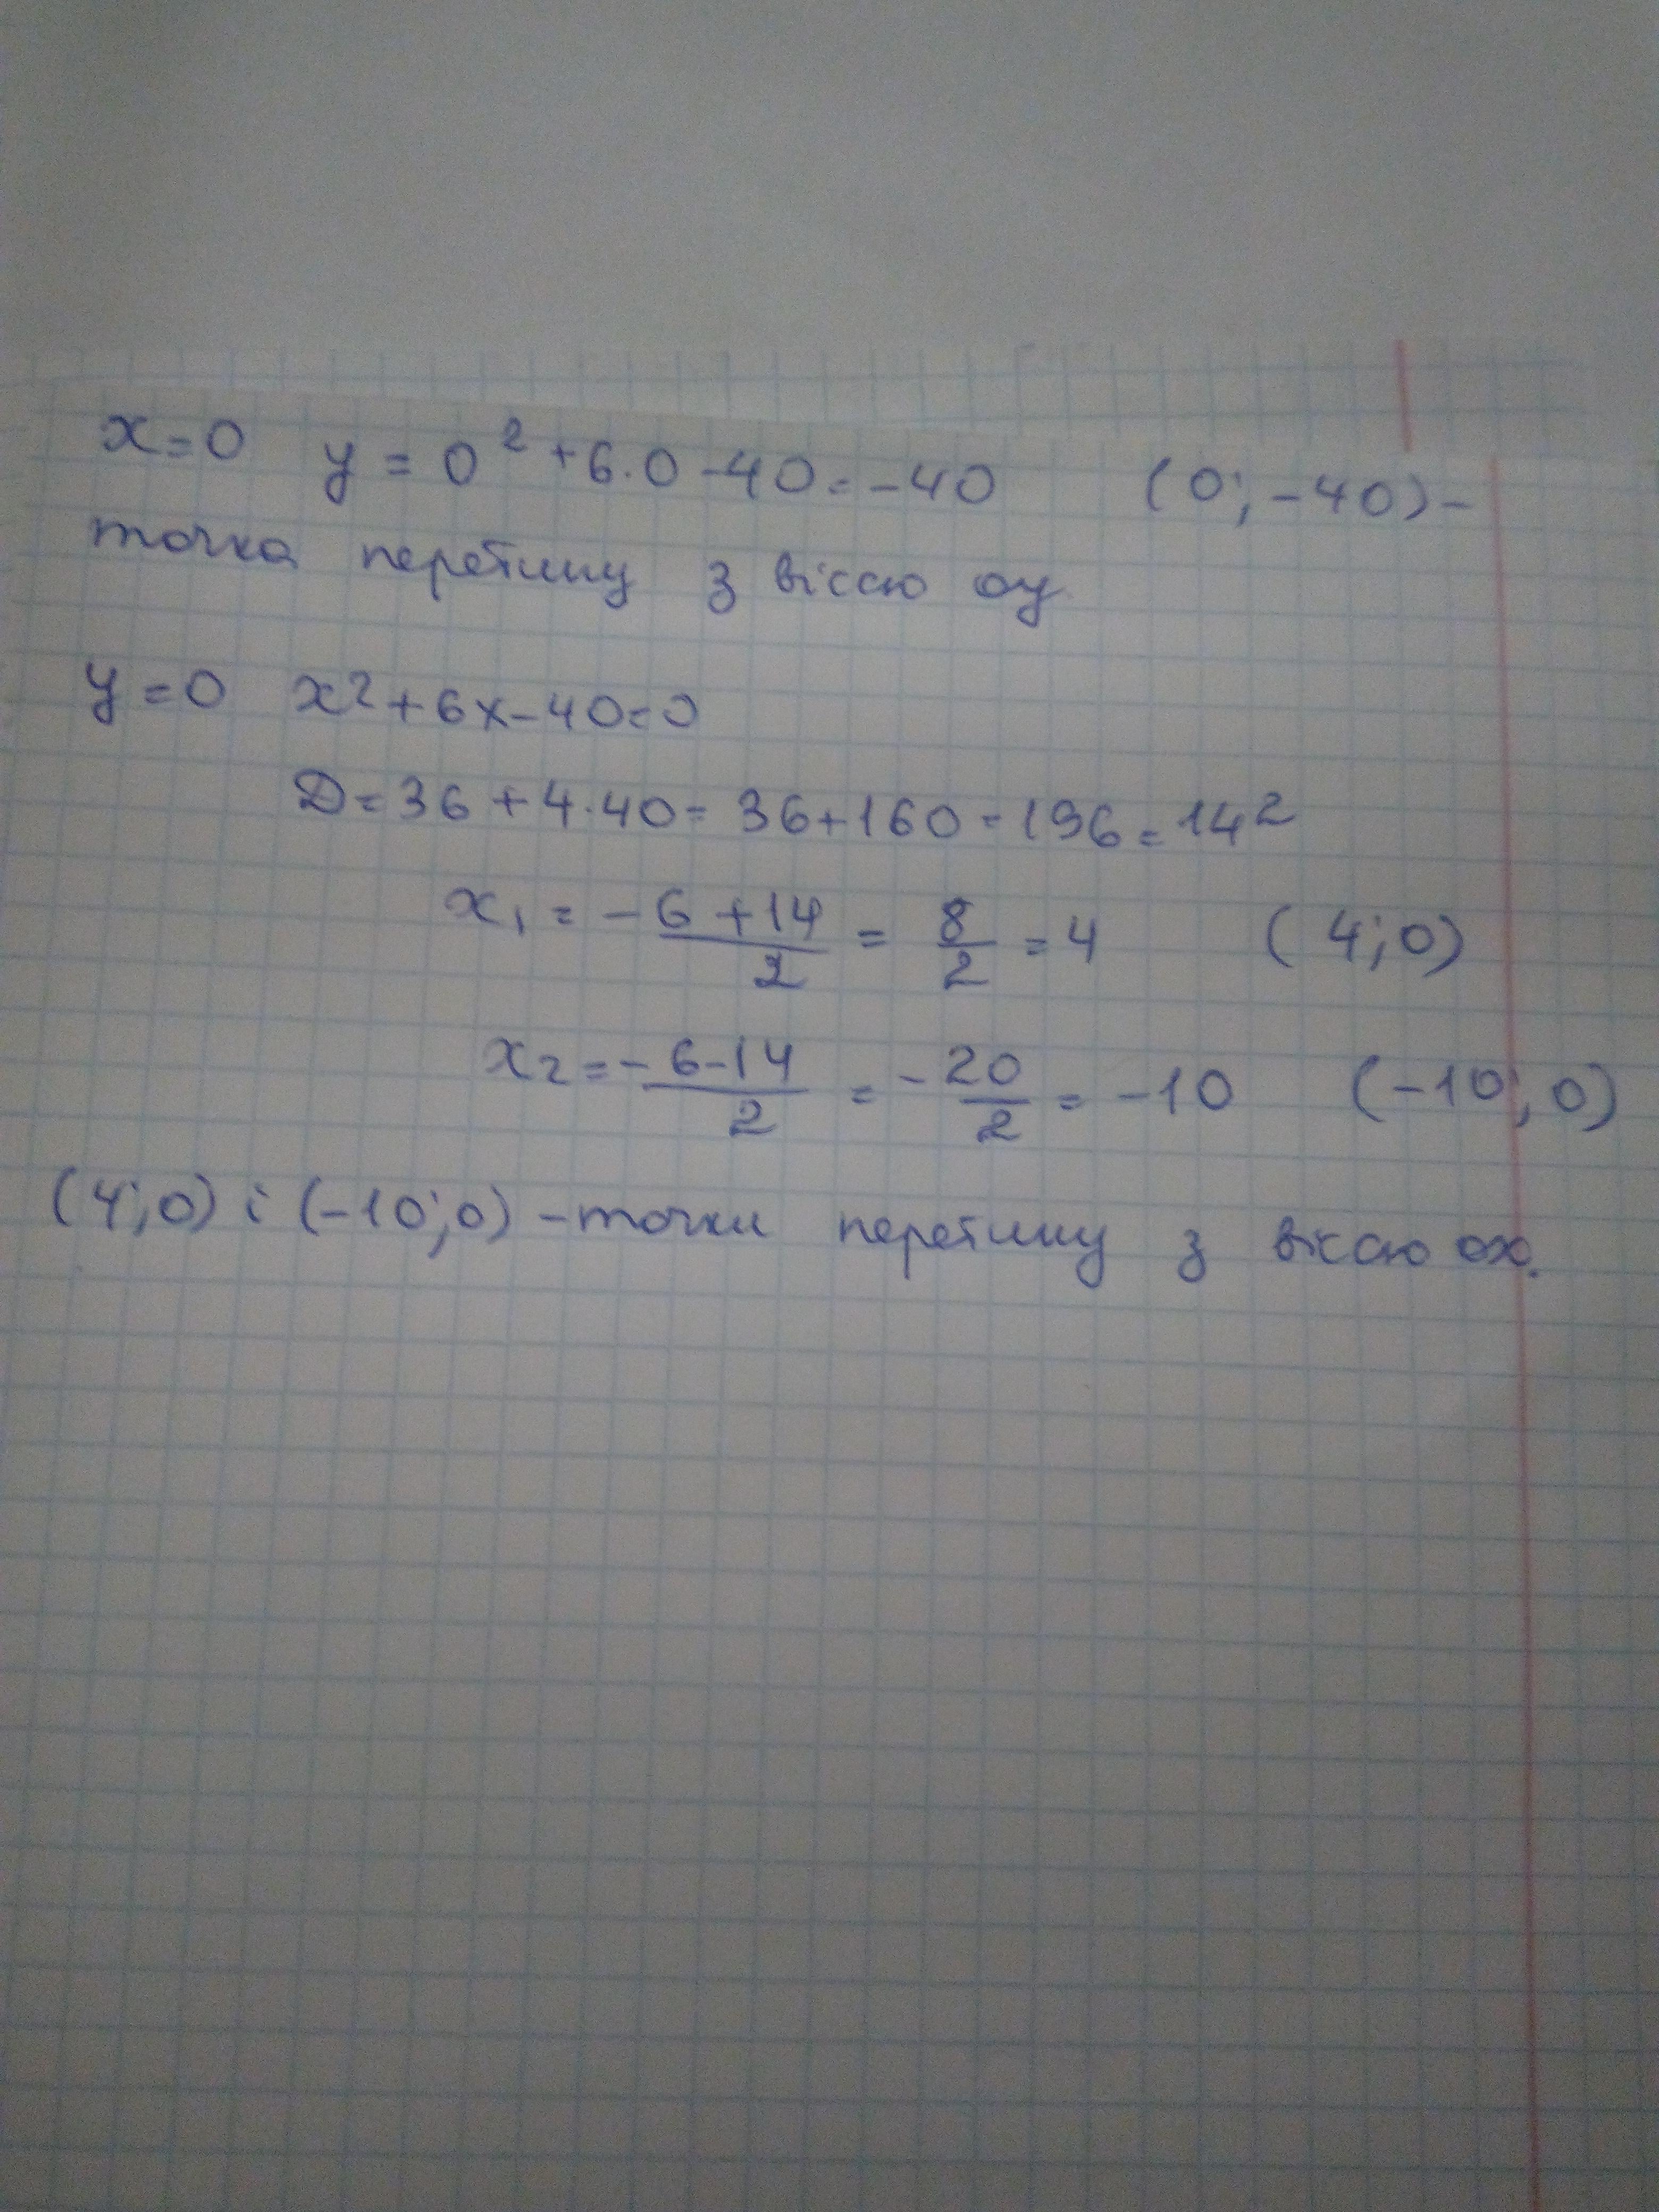 x=0 y = 0² + 6·0 - 40 = -40 (0; -40) -
точка перетину з віссю oy
y=0 x² + 6x - 40 = 0
D = 36 + 4·40 = 36 + 160 = 196 = 14²
x₁ = (-6+14)/2 = 8/2 = 4 (4; 0)
x₂ = (-6-14)/2 = -20/2 = -10 (-10; 0)
(4; 0) і (-10; 0) - точки перетину з віссю ox.